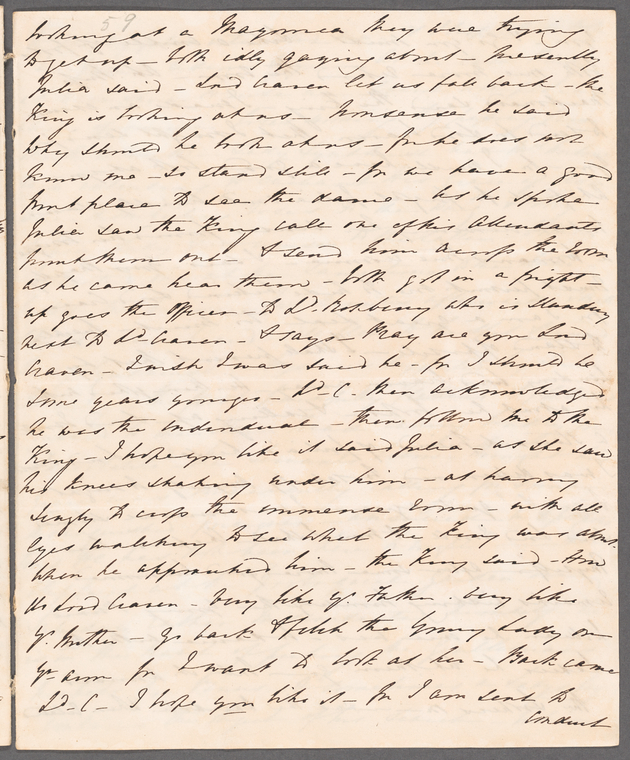 59
looking at a Mazourca they were trying
to get up – both idly gazing about – Presently
Julia said – Lord Craven let us fall back – the
King is looking at us – Nonsense he said
why should he look at us – for he does not
know me – so stand still – for we have a good
front place to see the dance – As he spoke
Julia saw the King call one of his Attendants
from them one – & send him across the room
as he came near them – both got in a fright –
up goes the Officer – to Ld. Rokebury who is standing
next to Ld. Craven – & says – Pray are you Lord
Craven – I wish I was said he – for I should be
some years younger – Ld. C. then acknowledged
he was the individual – then follow me to the
King – I hope you like it said Julia – as she saw
his knees shaking under him – at having
singly to cross the immense room – with all
Eyes watching to see what the King was about.
When he approached him – the King said – How
do Lord Craven – very like yr. Father. very like
yr. Mother – go back & fetch the Young Lady on
yr arm for I want to look at her – Back came
Ld. C – I hope you like it – for I am sent to
conduct